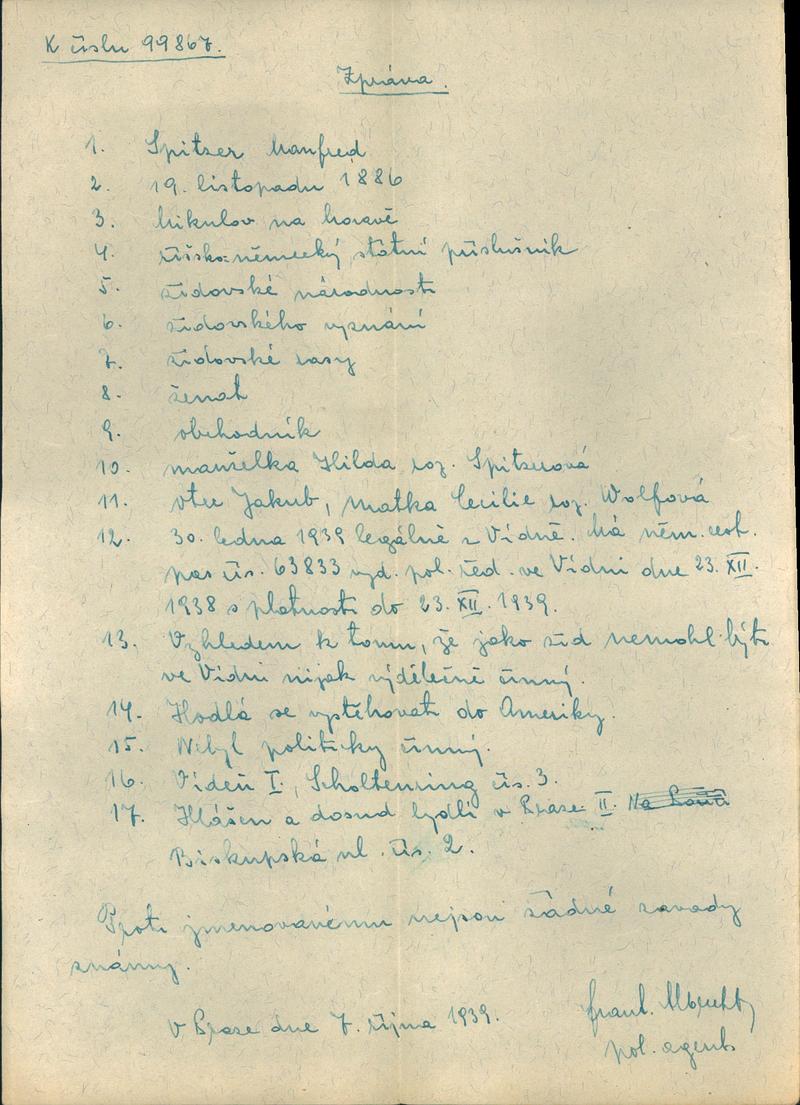 K číslu 99867.
Zpráva.
1. Spitzer Manfred
2. 19. listopadu 1886
3. Mikulov na Moravě
4. říšsko-německý státní příslušník
5. židovské národnosti
6. židovského vyznání
7. židovské rasy
8. ženat
9. obchodník
10. manželka Hilda roz. Spitzerová
11. otec Jakub, matka Cecilie roz. Wolfová
12. 30. ledna 1939 legálně z Vídně. Má něm. cest.
pas čís. 63833 vyd. pol. řed. ve Vídni dne 23. XII.
1938 s platností do 23. XII. 1939.
13. Vzhledem k tomu, že jako žid nemohl býti
ve Vídni nijak výdělečně činný.
14. Hodlá se vystěhovati do Ameriky.
15. Nebyl politicky činný.
16. Vídeň I, Scholtenring čís. 3.
17. Hlášen a dosud bydlí v Praze II. Na Poříčí
Biskupská ul. čís. 2.
Proti jmenovanému nejsou žádné závady
známy.
V Praze dne 7. října 1939.
frant. Albrecht
pol. agent